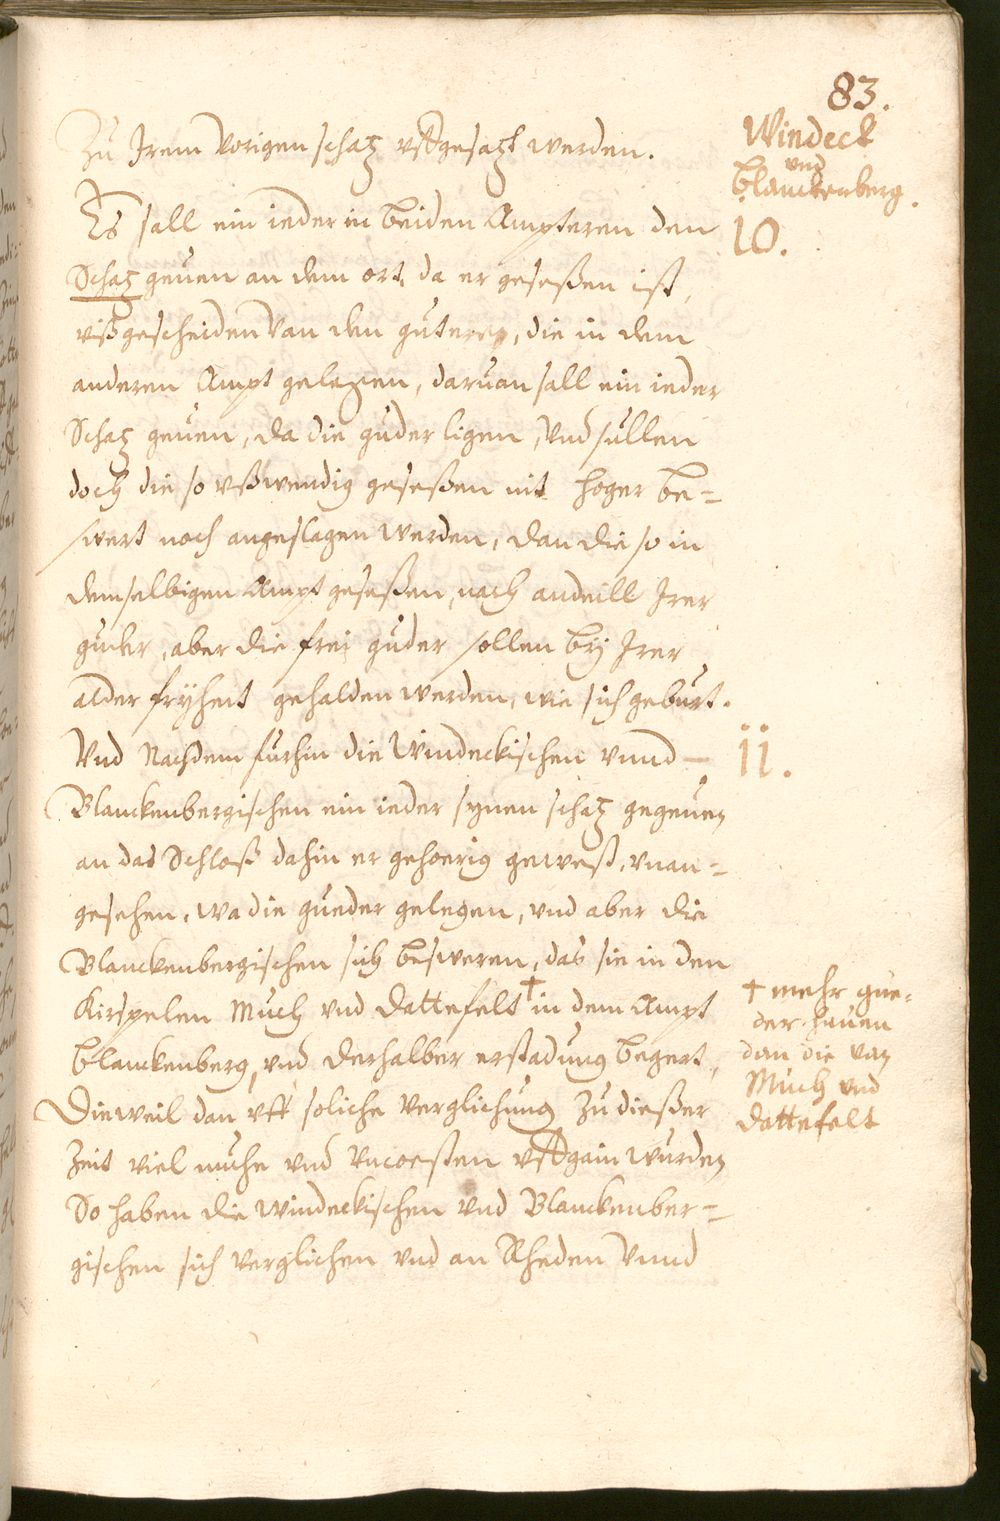 83.
Windeck
vnd
Blanckenberg.
Zu Irem vorigen schatz vffgesatzt werden.
10.
Es sall ein ieder in beiden Ampteren den
Schatz geuen an dem ort, da er geseßen ist,
vißgescheiden van den guteren, die in dem
anderen Ampt gelegen, daruan sall ein ieder
Schatz geuen, da die guder ligen, vnd sullen
doch die so vßwendig geseßen nit hoger be=
swert noch angeslagen werden, dan die so in
demselbigen Ampt geseßen, nach andeill Irer
guder, aber die frei guder sollen by Irer
alder fryheit gehalden werden, wie sich geburt.
11.
Vnd nachdem furhin die Windeckischen vnnd
Blanckenbergischen ein ieder synen schatz gegeuen
an das Schloß dahin er gehoerig geweßt, vnan=
gesehen, wa die gueder gelegen, vnd aber die
Blanckenbergischen sich besweren, das sie in den
Kirspelen Much vnd Dattefelt † in dem Ampt
Blanckenberg, vnd derhalber erstadung begert,
† mehr gue=
der hauen
dan die van
Much vnd
Dattefelt
Dieweil dan vff soliche verglichung zu dießer
Zeit viel muhe vnd vncoesten vffgain wurden
So haben die Windeckischen vnd Blanckenber=
gischen sich verglichen vnd an Rheden vnnd